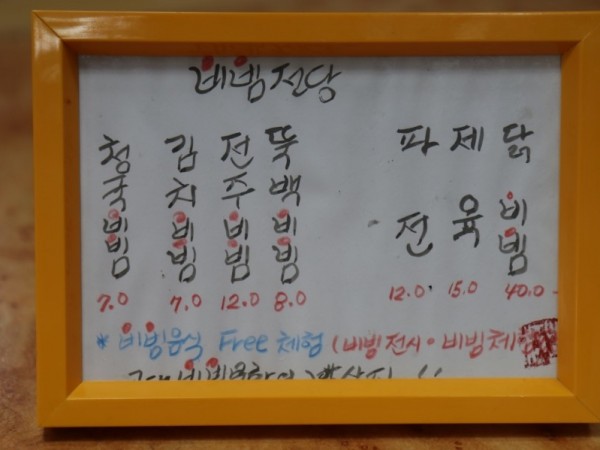 비빔전당
청국비빔 7.0
김치비빔 7.0
전주비빔 12.0
뚝백비빔 8.0
파전 12.0
제육 15.0
닭비빔 40.0
* 비빙음식 Free 체험 (비빙전시 · 비빙체